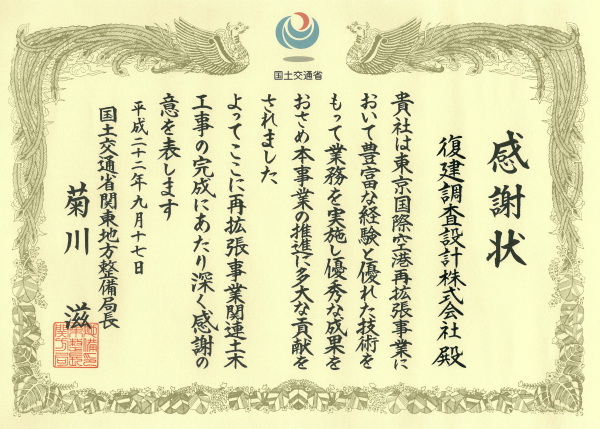 国土交通省
感謝状
復建調査設計株式会社 殿
貴社は東京国際空港再拡張事業に
おいて豊富な経験と優れた技術を
もって業務を実施し優秀な成果を
おさめ本事業の推進に多大な貢献を
されました
よってここに再拡張事業関連土木
工事の完成にあたり深く感謝の
意を表します
平成二十二年九月十七日
国土交通省関東地方整備局長
菊川 滋